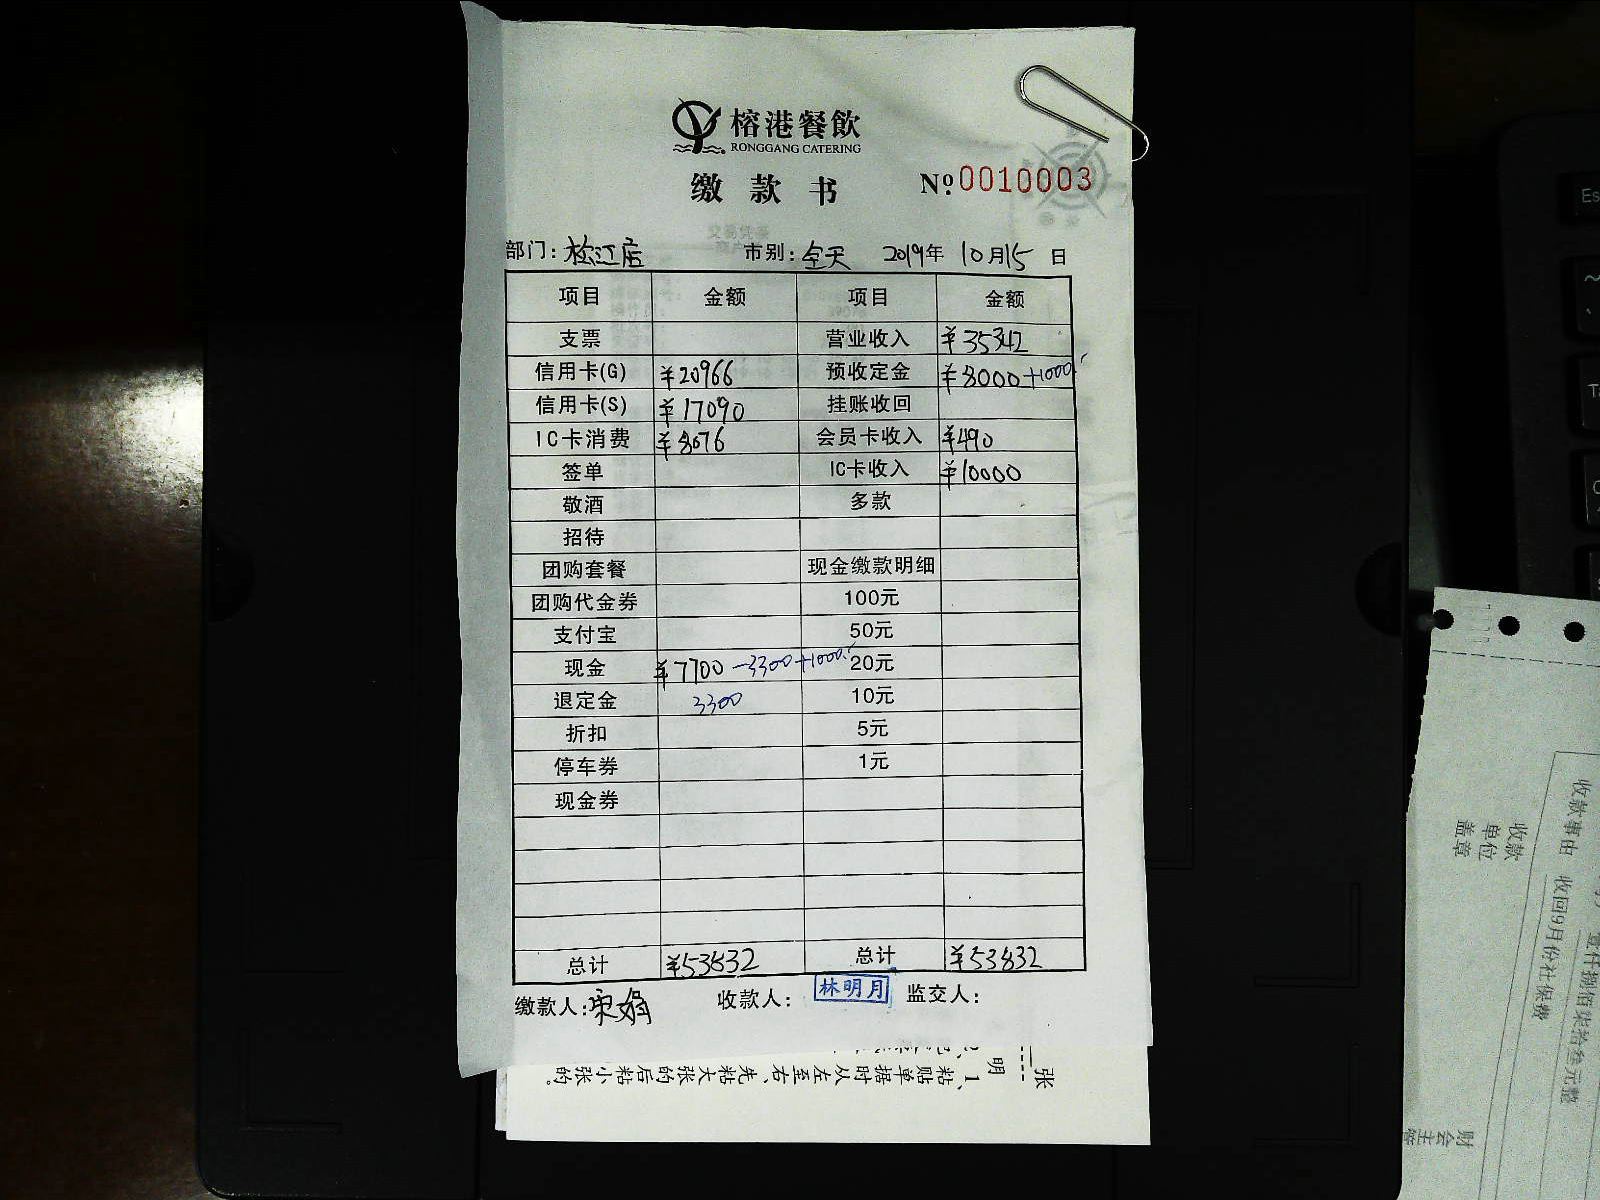 榕港餐飲
RONGGANG CATERING
缴款书 № 0010003
部门: 松江店 市别: 全天 2019年 10月15日
项目 金额 项目 金额
支票 营业收入 ¥35342
信用卡(G) ¥20966 预收定金 ¥8000+1000
信用卡(S) ¥17090 挂账收回
IC卡消费 ¥8076 会员卡收入 ¥490
签单 IC卡收入 ¥10000
敬酒 多款
招待
团购套餐 现金缴款明细
团购代金券 100元
支付宝 50元
现金 ¥7700 -3300+1000 20元
退定金 3300 10元
折扣 5元
停车券 1元
现金券
总计 ¥53832 总计 ¥53832
缴款人: 宋娟 收款人: 林明月 监交人:
张
明
1、粘贴单据时从左至右、先粘大张的后粘小张的。
收款事由 收回9月份社保费
壹仟捌佰柒拾叁元整
收款
单位
盖章
财会主管
Es